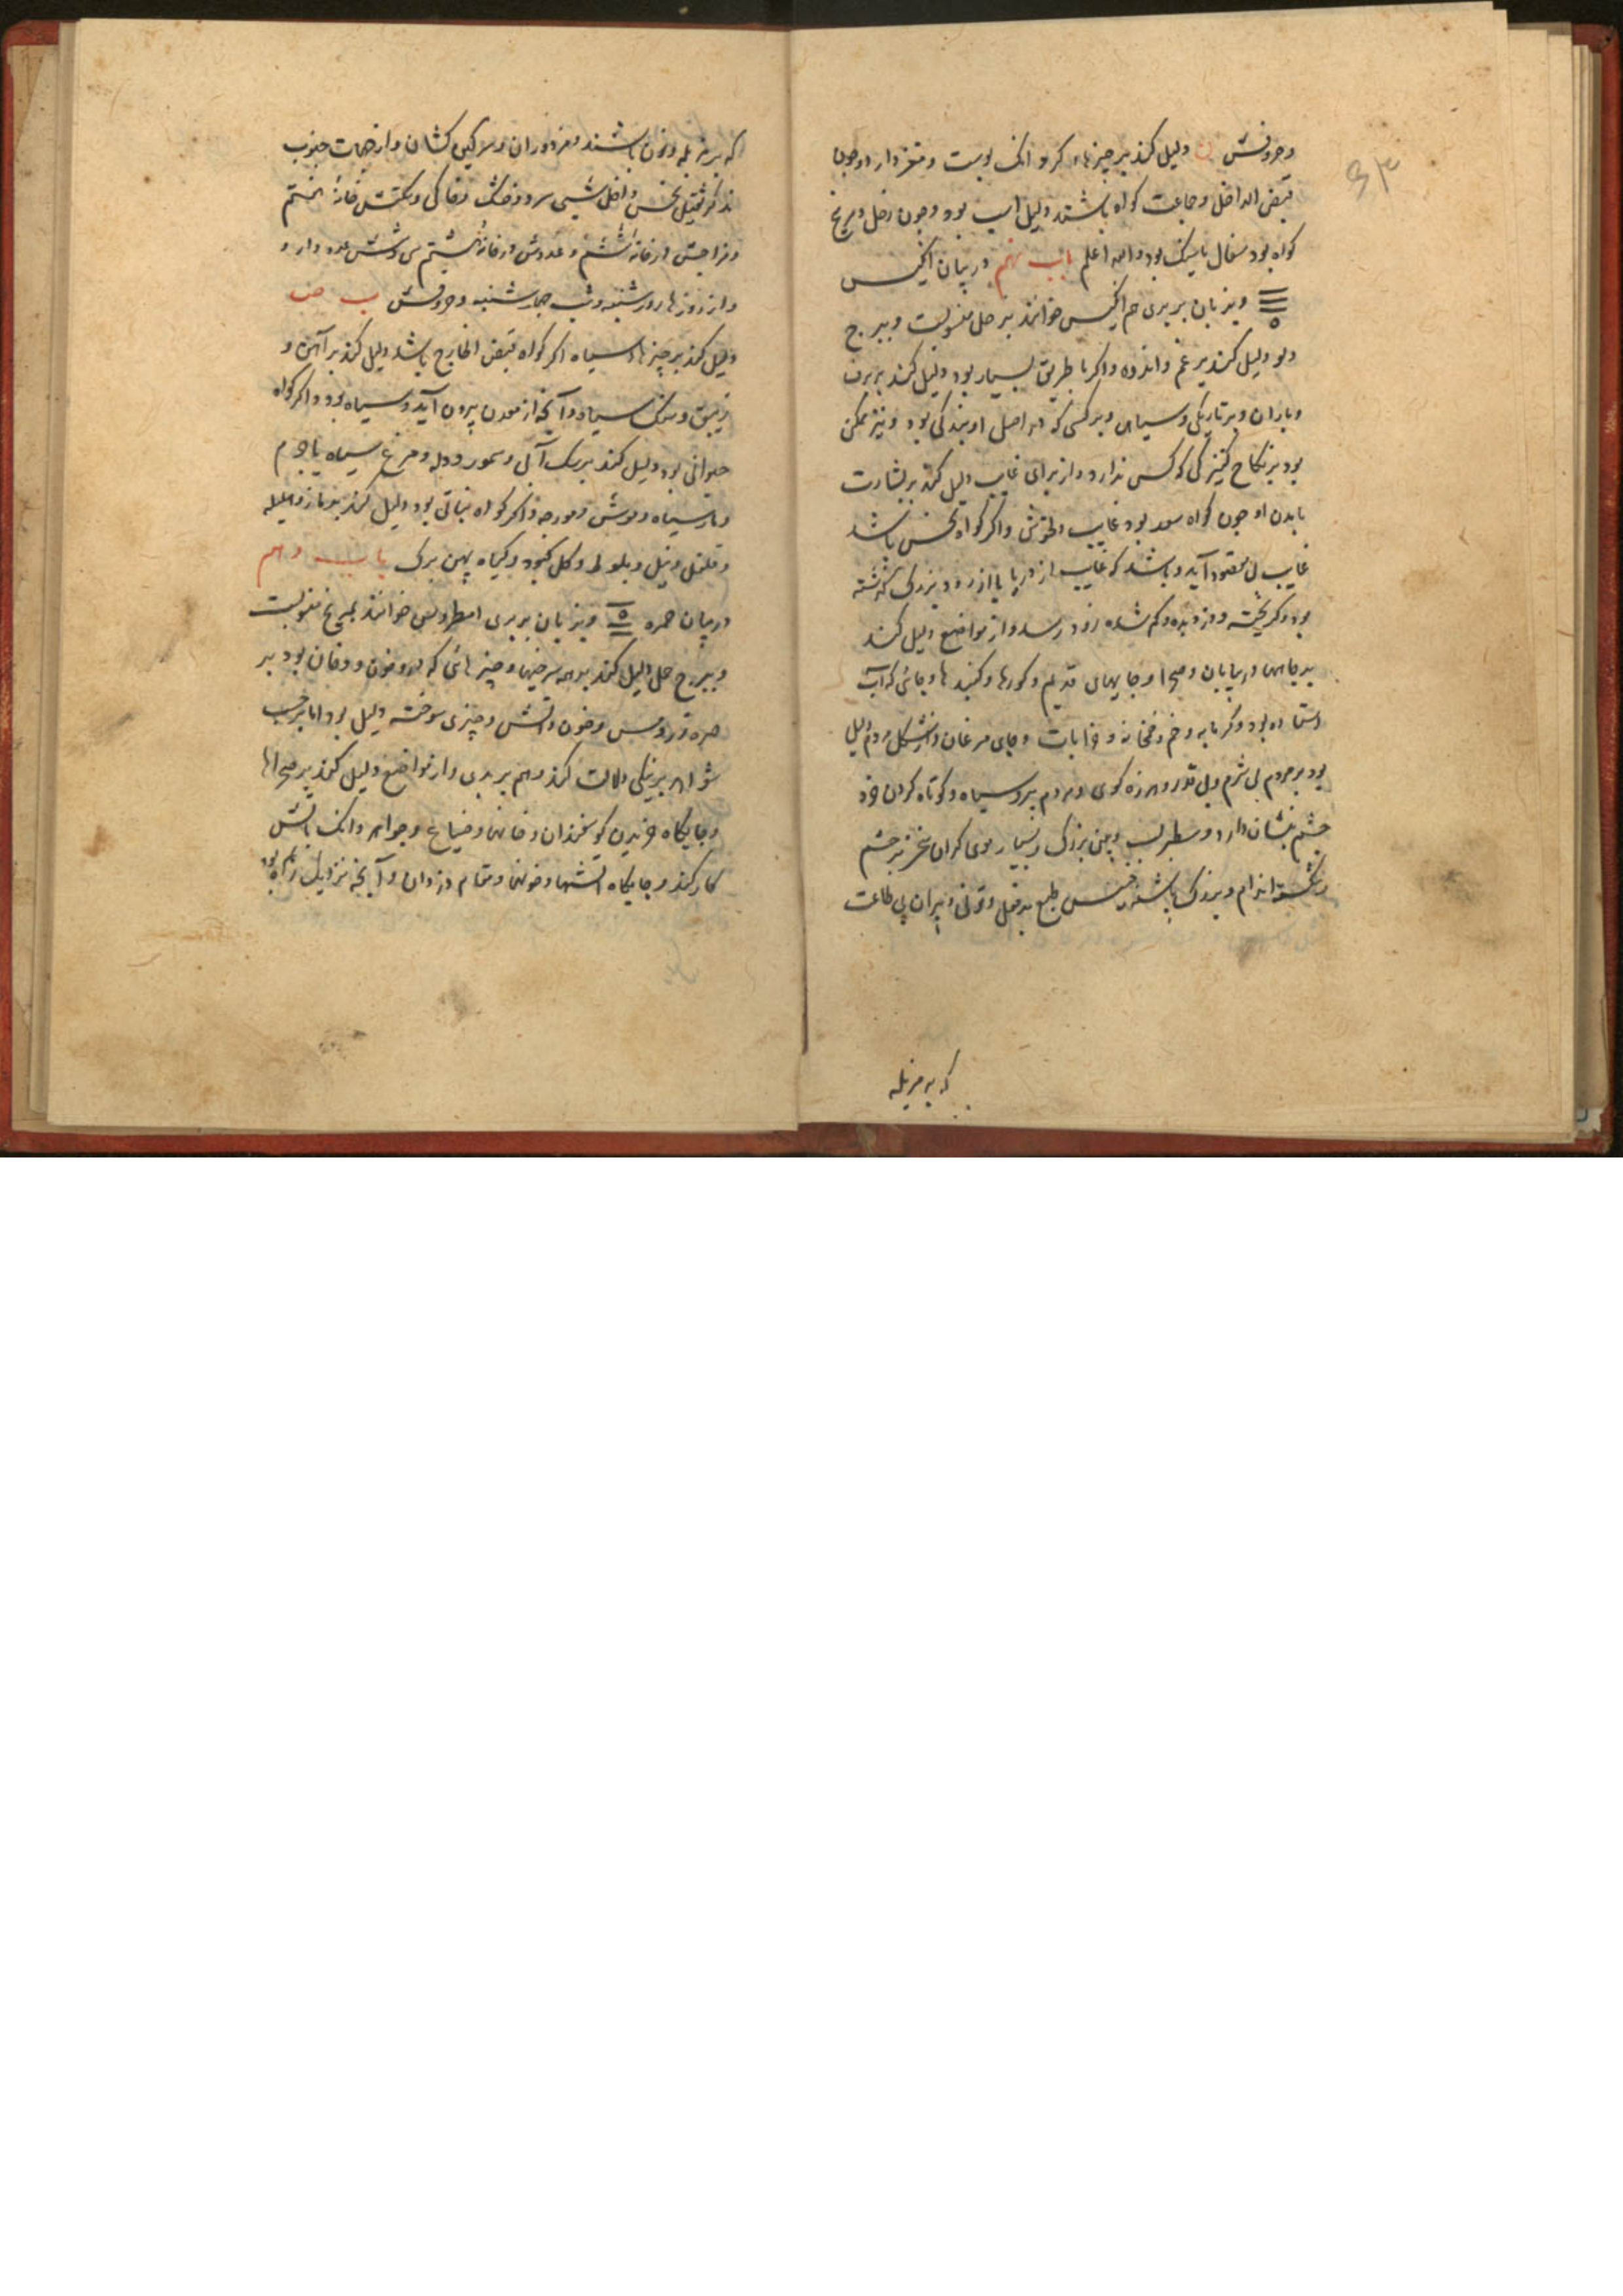 ۶۳
وحروفش ن دلیل کند بر چیزهاء کرد انک پوست و مغز دارد و چون
قبض الداخل و جماعت کواه باشند دلیل اسب بود و چون زحل و مریخ
کواه بود سفال یا سنک بود والله اعلم باب نهم در بیان انکیس
و بزبان بربری هم انکیس خوانند بزحل منسوبست و ببرج
دلو دلیل کند بر غم و اندوه و اکر با طریق بسیار بود دلیل کند بر برف
و باران و بر تاریکی و سیاهی و بر کسی که در اصل او بندکی بود و نیز ممکن
بود بر نکاح کنیزکی که کس ندارد و از برای غایب دلیل کند بر بشارت
بآمدن او چون کواه سعد بود غایب دلخوش و اکر کواه نحس باشد
غایب بی مقصود آید و باشد که غایب از دریا یا از رود بزرک کذشته
بود و کریخته و دزدیده و کم شده زود رسد و از مواضع دلیل کند
بر جاهها در بیابان و صحرا و جایهای قدیم و کورها و کنبدها و جائی که آب
استاده بود و کرمابه و خم و خمخانه و خرابات و جای مرغان و از شکل مردم دلیل
بود بر مردم بی شرم و بی قدر و هرزه کوی و مردم پیر و سیاه و کوتاه کردن خرد
چشم نشان دارد و سطبر لب و بینی بزرک و بسیار موی کران مغز بر چشم
شکسته اندام و بزرک باشند خسیس طبع بد فعل و تونی و پیران بی طاعت
که بر مزبله
که بر مزبله و تون باشند و مزدوران و سرکین کشان و از جهات جنوب
مذکر ثقیل نحس داخل شبی سرد و خشک و خاکی و سکنش خانۀ هشتم
و مزاجش از خانۀ ششم و عددش از خانۀ هشتم سی و شش عدد دارد و
و از روزها روز شنبه و شب چهارشنبه و حروفش ب ص
دلیل کند بر چیزهاء سیاه اکر کواه قبض الخارج باشد دلیل کند بر آهن و
زیبق و سنک سیاه و آنچه از معدن بیرون آید و سیاه بود و اکر کواه
حیوانی بود دلیل کند بر سک آبی و سمور و دله و مرغ سیاه یا جرم
و مار سیاه و موش و مورچه و اکر کواه نباتی بود دلیل کند بر مازو و هلیله
و فلفل و نیل و بلوط و کل کبود و کیاه پهن برک باب دهم
در بیان حمره و بزبان بربری خوانند بمریخ منسوبست
و ببرج حمل دلیل کند بر همه سرخیها و چیزهائی که در و خون و دخان بود بر
مس و خون و آتش و چیزی سوخته دلیل بود اما بر حسب
شواهد بر نیکی دلالت کند و هم بر بدی و از مواضع دلیل کند بر صحراها
و جایکاه خریدن کوسفندان و خانها و ضیاع و جواهر و انک بآتش
کار کند و جایکاه آتشها و خونها و مقام دزدان و آنچه نزدیک راه بود